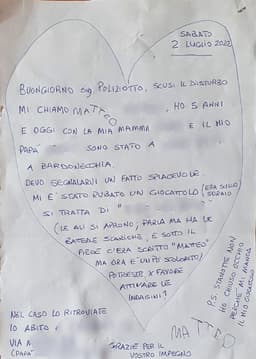 SABATO
2 LUGLIO 2022
BUONGIORNO Sig. POLIZIOTTO, SCUSI IL DISTURBO
MI CHIAMO MATTEO , HO 5 ANNI
E OGGI CON LA MIA MAMMA E IL MIO
PAPA' SONO STATO A
A BARDONECCHIA.
DEVO SEGNALARVI UN FATTO SPIACEVOLE
MI E' STATO RUBATO UN GIOCATTOLO (ERA SULLO SDRAIO
SI TRATTA DI "
(LE ALI SI APRONO, PARLA MA HA LE
BATTERIE SCARICHE, E SOTTO IL
PIEDE C'ERA SCRITTO "MATTEO"
MA ORA E' UN PO' SCOLORITO)
POTRESTE X FAVORE
ATTIVARE LE
INDAGINI?
P.S. STANOTTE NON
HO CHIUSO OCCHIO
PERCHE' MI MANCA
IL MIO GIOCATTOLO
NEL CASO LO RITROVIATE
IO ABITO A
VIA
(PAPA'
MATTEO
GRAZIE PER IL
VOSTRO IMPEGNO